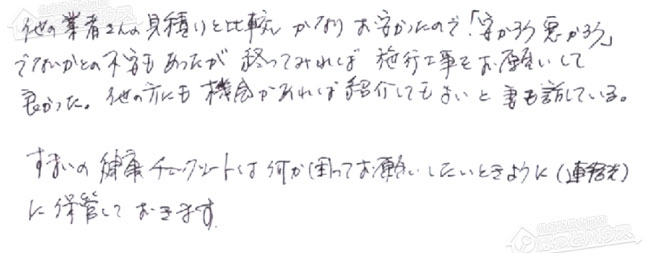 他の業者さんの見積りと比較し かなりお安かったので、「安かろう悪かろう」
でないかとの不安もあったが 終ってみれば 施行工事をお願いして
良かった。他の方にも機会があれば紹介してもよいと 妻も話している。
すまいの健康チェックシートは何か困ってお願いしたいときように(連絡先)
に保管しておきます。